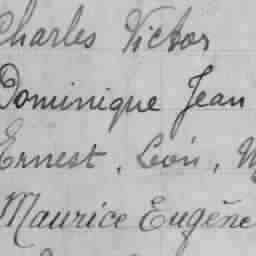 Charles Victor
Dominique Jean
Ernest, Léon,
Maurice Eugène